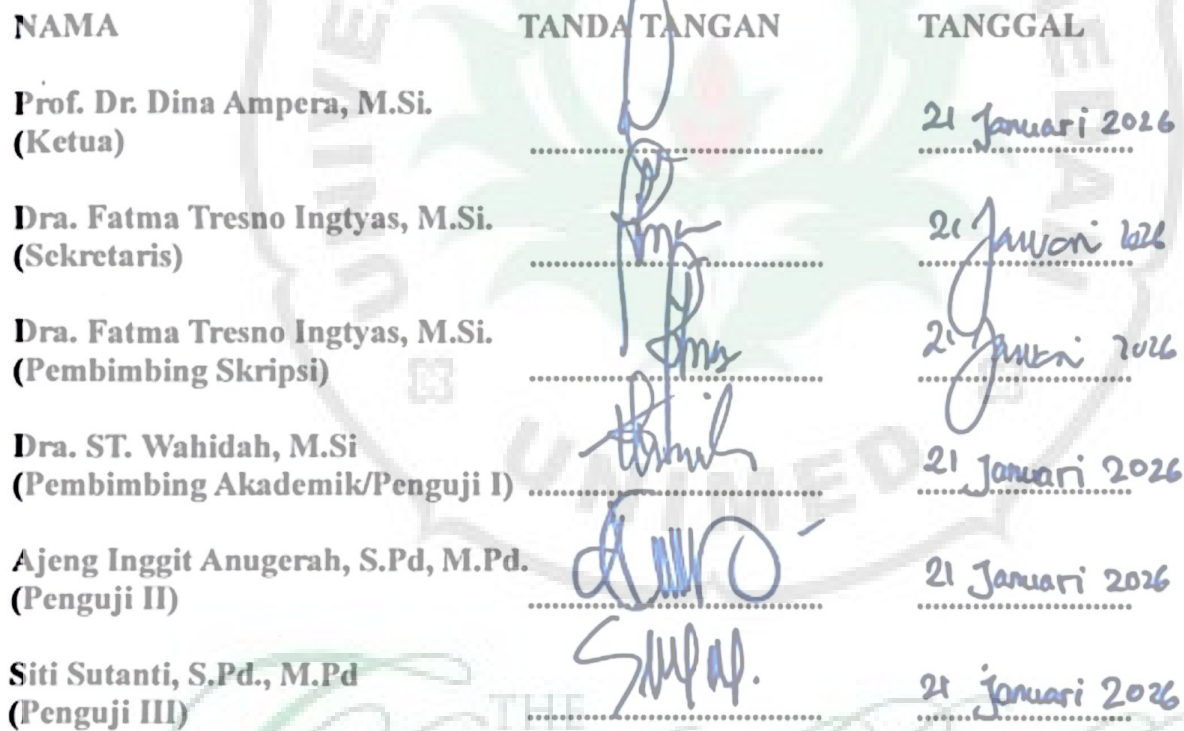 NAMA TANDA TANGAN TANGGAL
Prof. Dr. Dina Ampera, M.Si.
(Ketua) 21 Januari 2026
Dra. Fatma Tresno Ingtyas, M.Si.
(Sekretaris) 21 Januari 2026
Dra. Fatma Tresno Ingtyas, M.Si.
(Pembimbing Skripsi) 21 Januari 2026
Dra. ST. Wahidah, M.Si
(Pembimbing Akademik/Penguji I) 21 Januari 2026
Ajeng Inggit Anugerah, S.Pd, M.Pd.
(Penguji II) 21 Januari 2026
Siti Sutanti, S.Pd., M.Pd
(Penguji III) 21 Januari 2026
UNIMED
THE